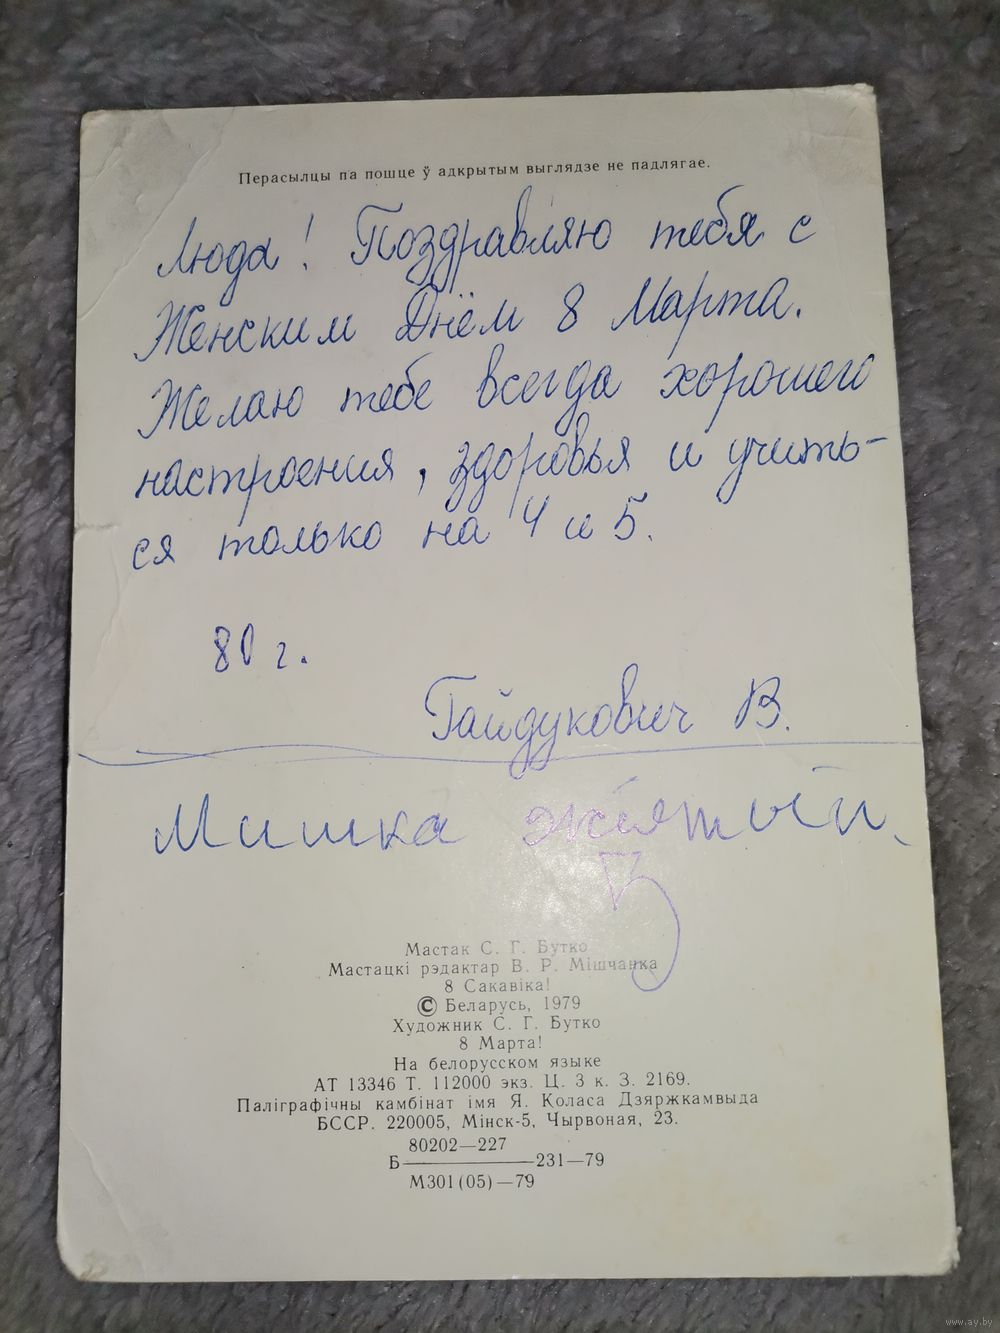 Перасылцы па пошце ў адкрытым выглядзе не падлягае.
Люда! Поздравляю тебя с
Женским Днём 8 Марта.
Желаю тебе всегда хорошего
настроения, здоровья и учить-
ся только на 4 и 5.
80 г.
Гайдукович В.
Мишка
Мастак С. Г. Бутко
Мастацкі рэдактар В. Р. Мішчанка
8 Сакавіка!
© Беларусь, 1979
Художник С. Г. Бутко
8 Марта!
На белорусском языке
АТ 13346 Т. 112000 экз. Ц. 3 к. З. 2169.
Паліграфічны камбінат імя Я. Коласа Дзяржкамвыда
БССР. 220005, Мінск-5, Чырвоная, 23.
80202—227
Б————231—79
М301(05)—79
www.ay.by